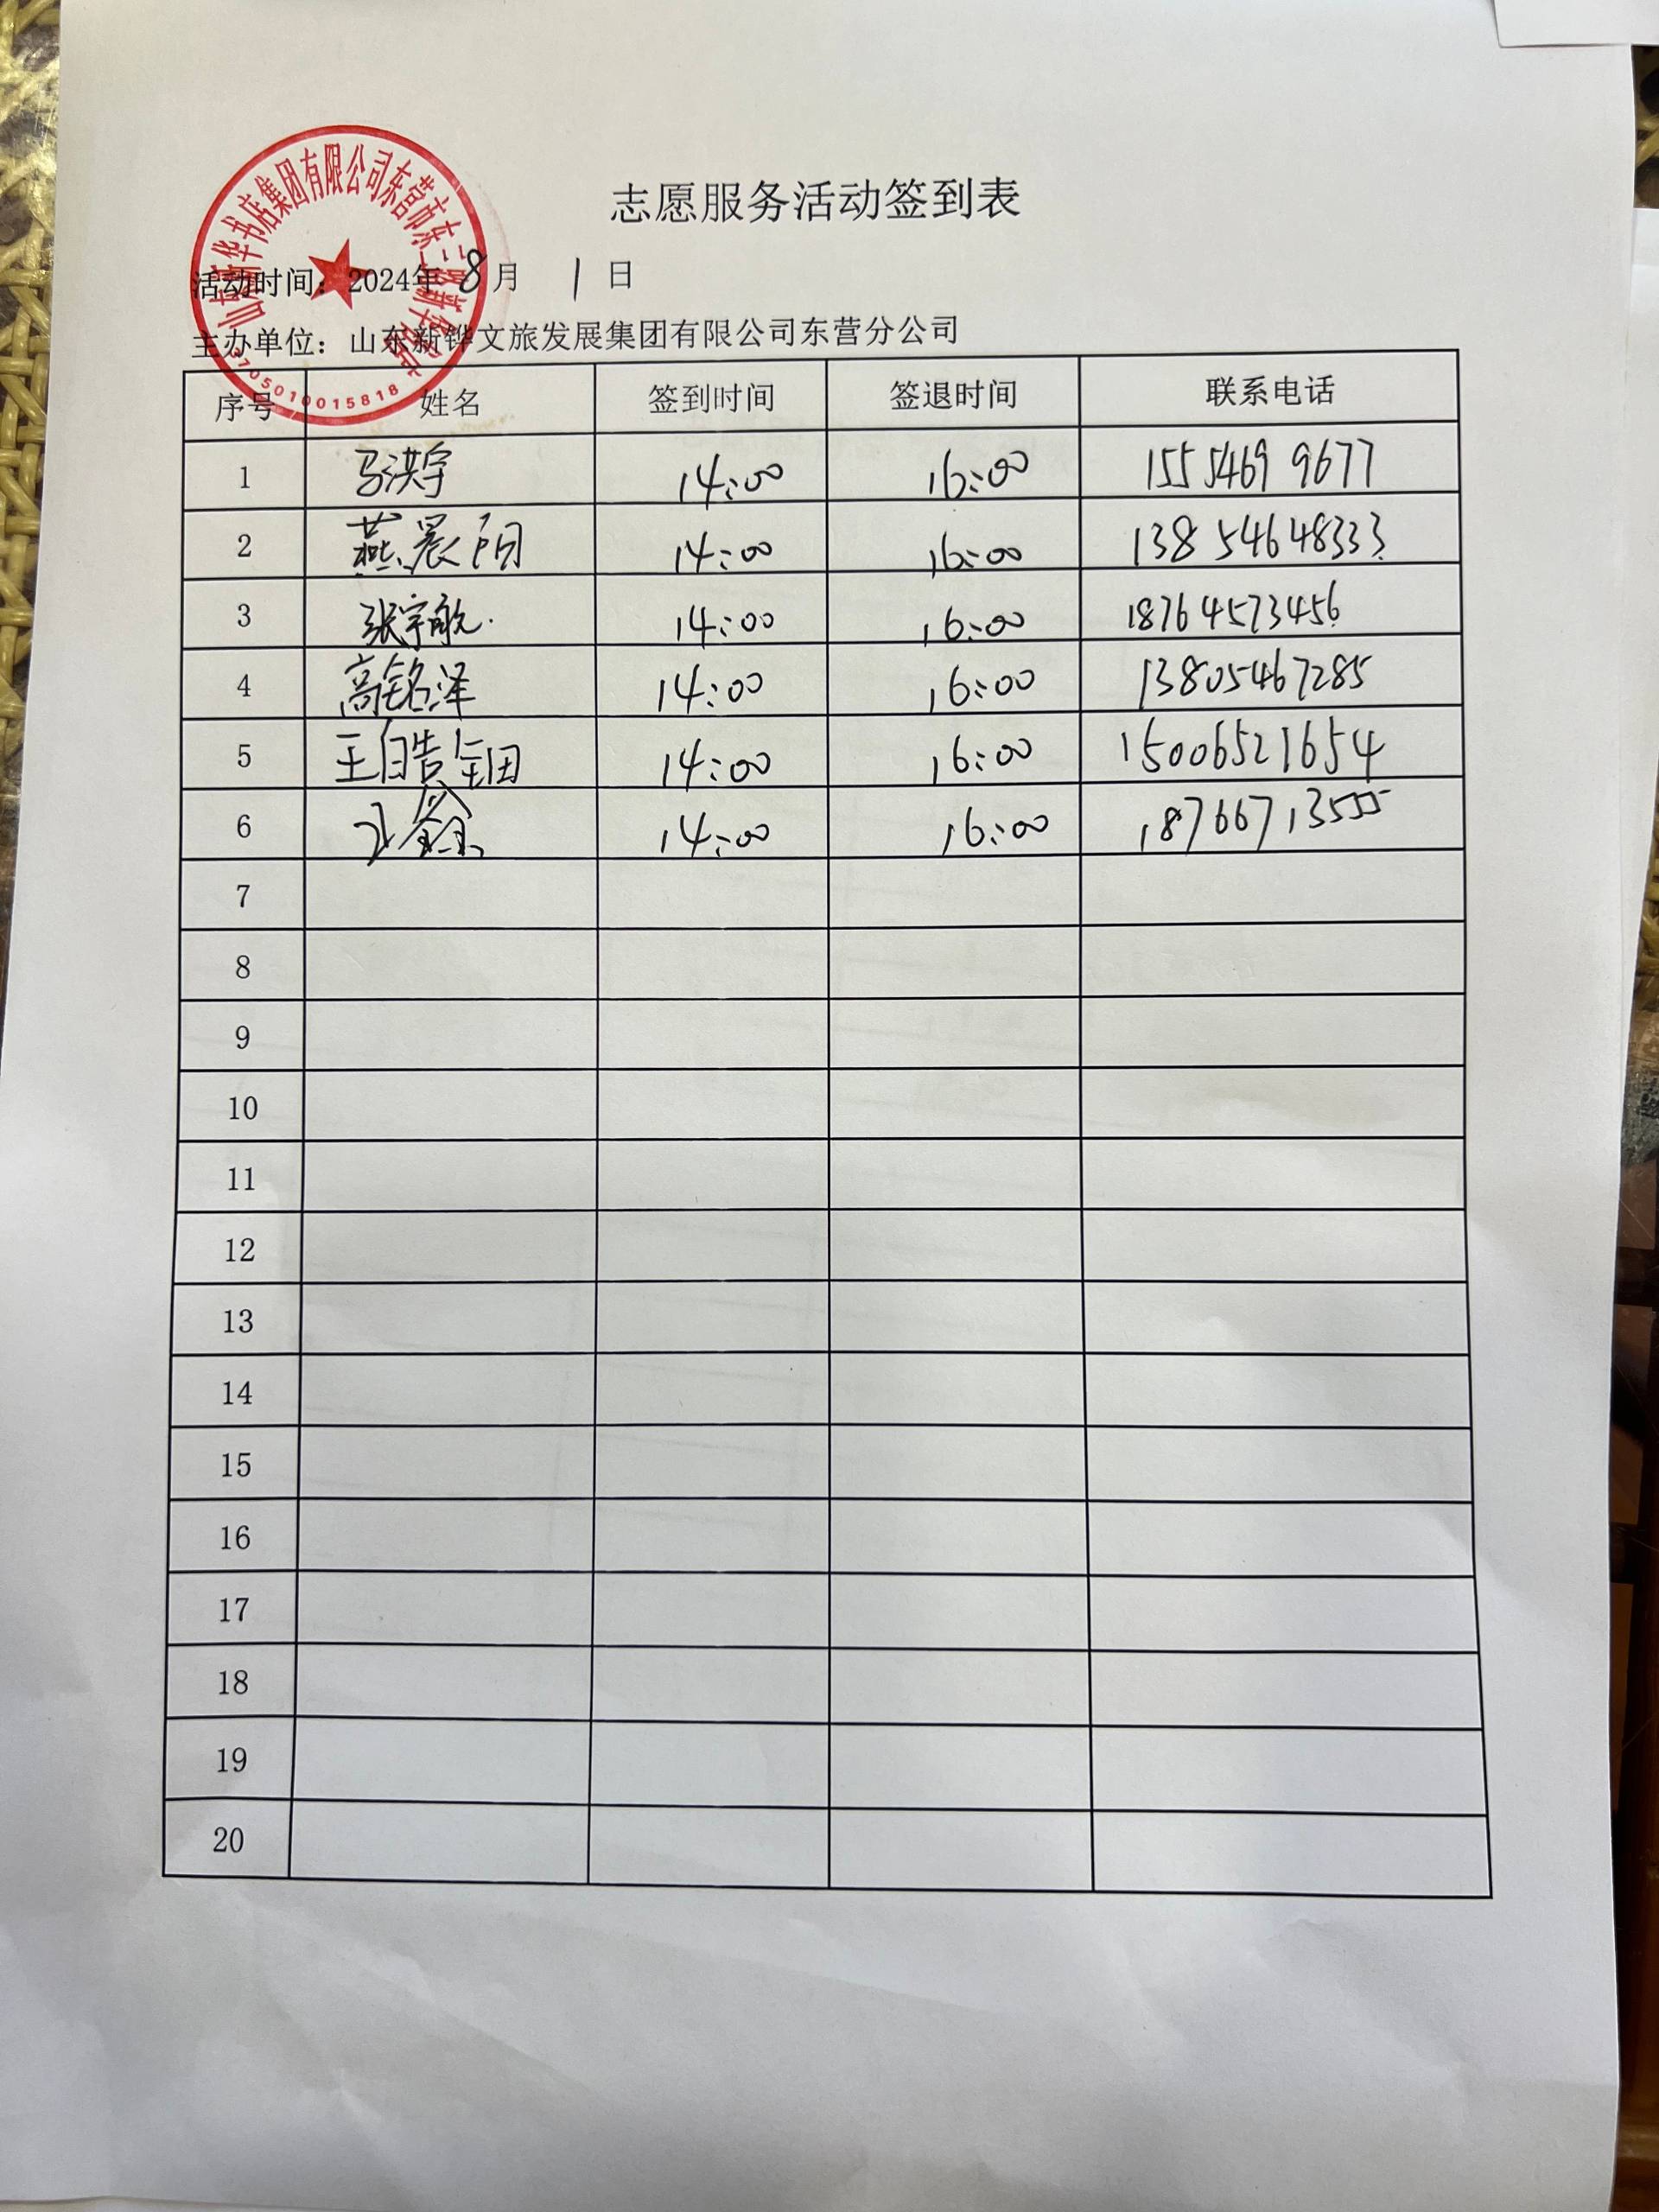 山东新华书店集团有限公司东营市东二路新华书店
3705010015818
志愿服务活动签到表
活动时间：2024年8月 1 日
主办单位：山东新铧文旅发展集团有限公司东营分公司
序号 姓名 签到时间 签退时间 联系电话
1 马洪宇 14:00 16:00 15554699677
2 燕晨阳 14:00 16:00 13854648333
3 张宇航 14:00 16:00 18764573456
4 高铭泽 14:00 16:00 13805467285
5 王皓钿 14:00 16:00 15006521654
6 14:00 16:00 18766713555
7
8
9
10
11
12
13
14
15
16
17
18
19
20